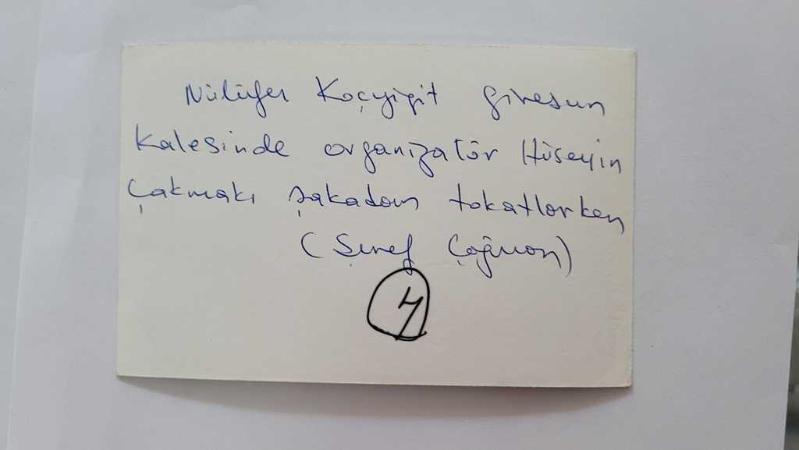 Nilüfer Koçyiğit giresun
Kalesinde organizatör Hüseyin
Çakmakı şakadan tokatlarken
(Şeref Çağman)
4